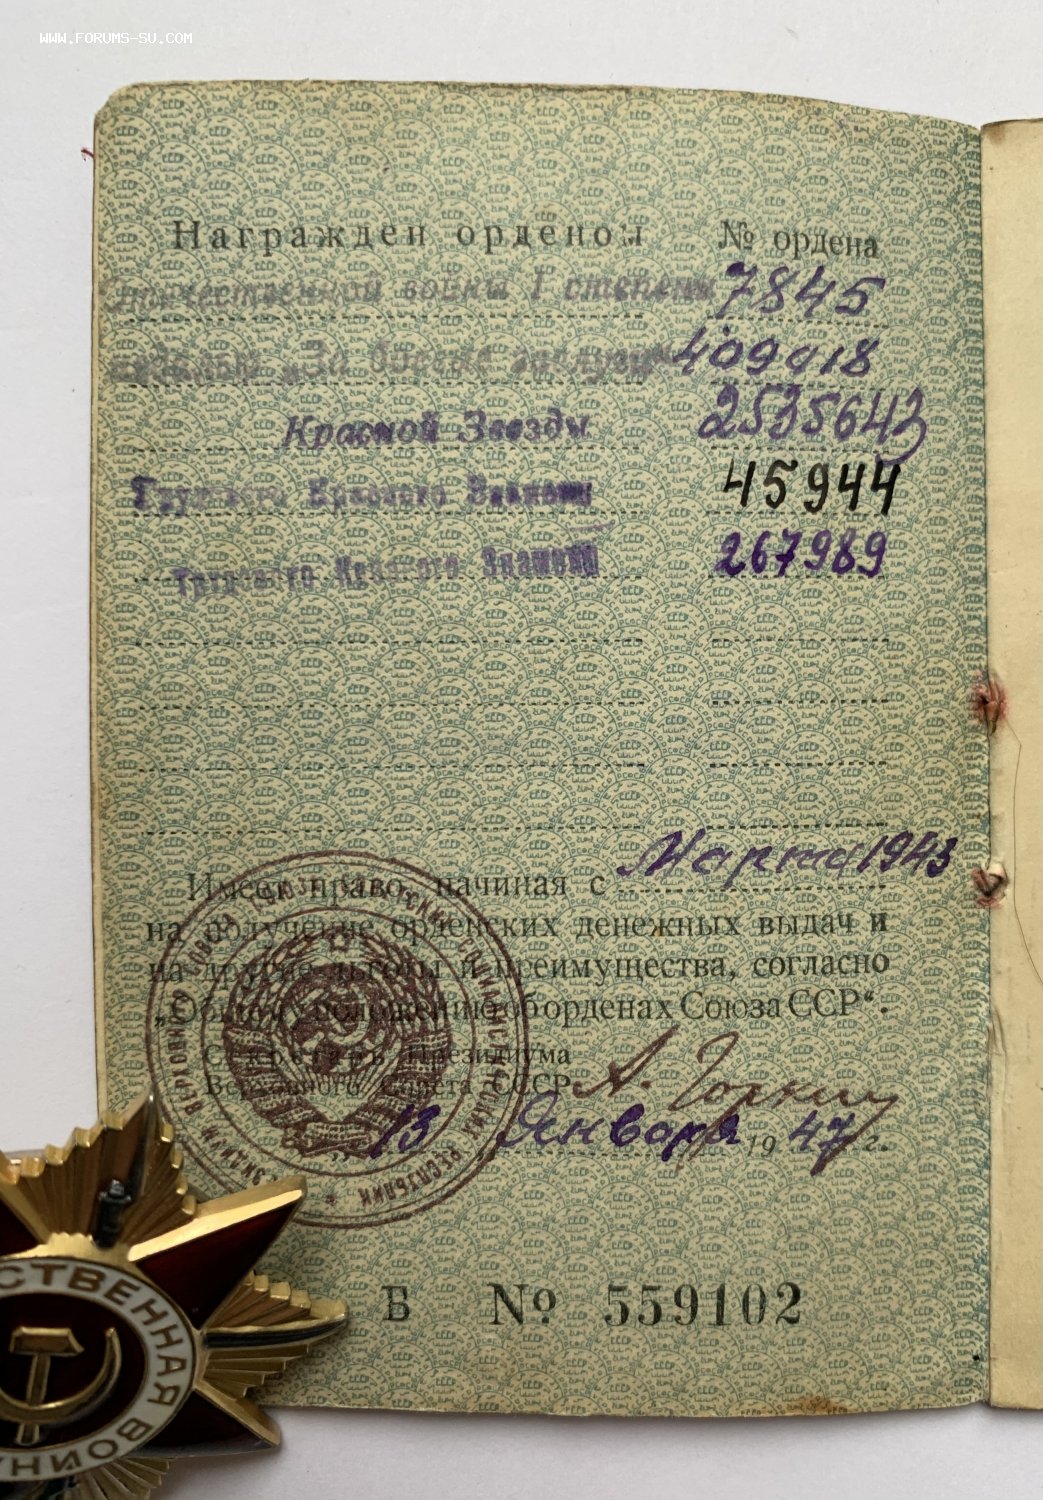 WWW.FORUMS-SU.COM
Награжден орденом № ордена
Отечественной войны I степени 7845
медалью „За боевые заслуги“ 409918
Красной Звезды 2535643
Трудового Красного Знамени 45944
Трудового Красного Знамени 267989
Имеет право, начиная с Марта 1943
на получение орденских денежных выдач и
на другие льготы и преимущества, согласно
„Общему положению об орденах Союза ССР“.
Секретарь Президиума
Верховного Совета СССР А. Горкин
13 Января 1947 г.
Б № 559102
СТВЕННАЯ ВОЙН